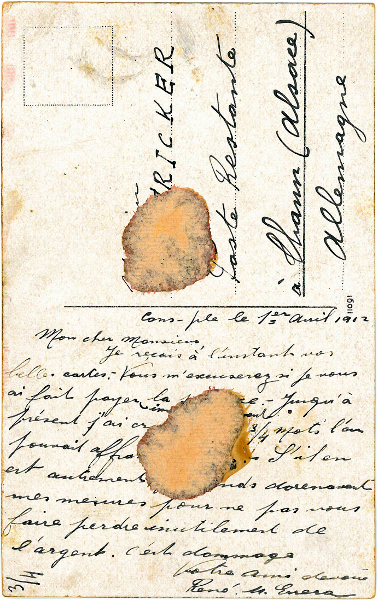 RICKER
Poste Restante
à Thann (Alsace)
Allemagne
11091
Cons-ple le 1er Avril 1912
Mon cher Monsieur,
Je reçois à l'instant vos
belles cartes. Vous m'excuserez si je vous
ai fait payer la - Jusqu'à
présent j'ai 3/4 mots l'on
pouvait S'il en
est autrement dorénavant
mes mesures pour ne pas vous
faire perdre inutilement de
l'argent. C'est dommage
Votre ami dévoué
René
3/4